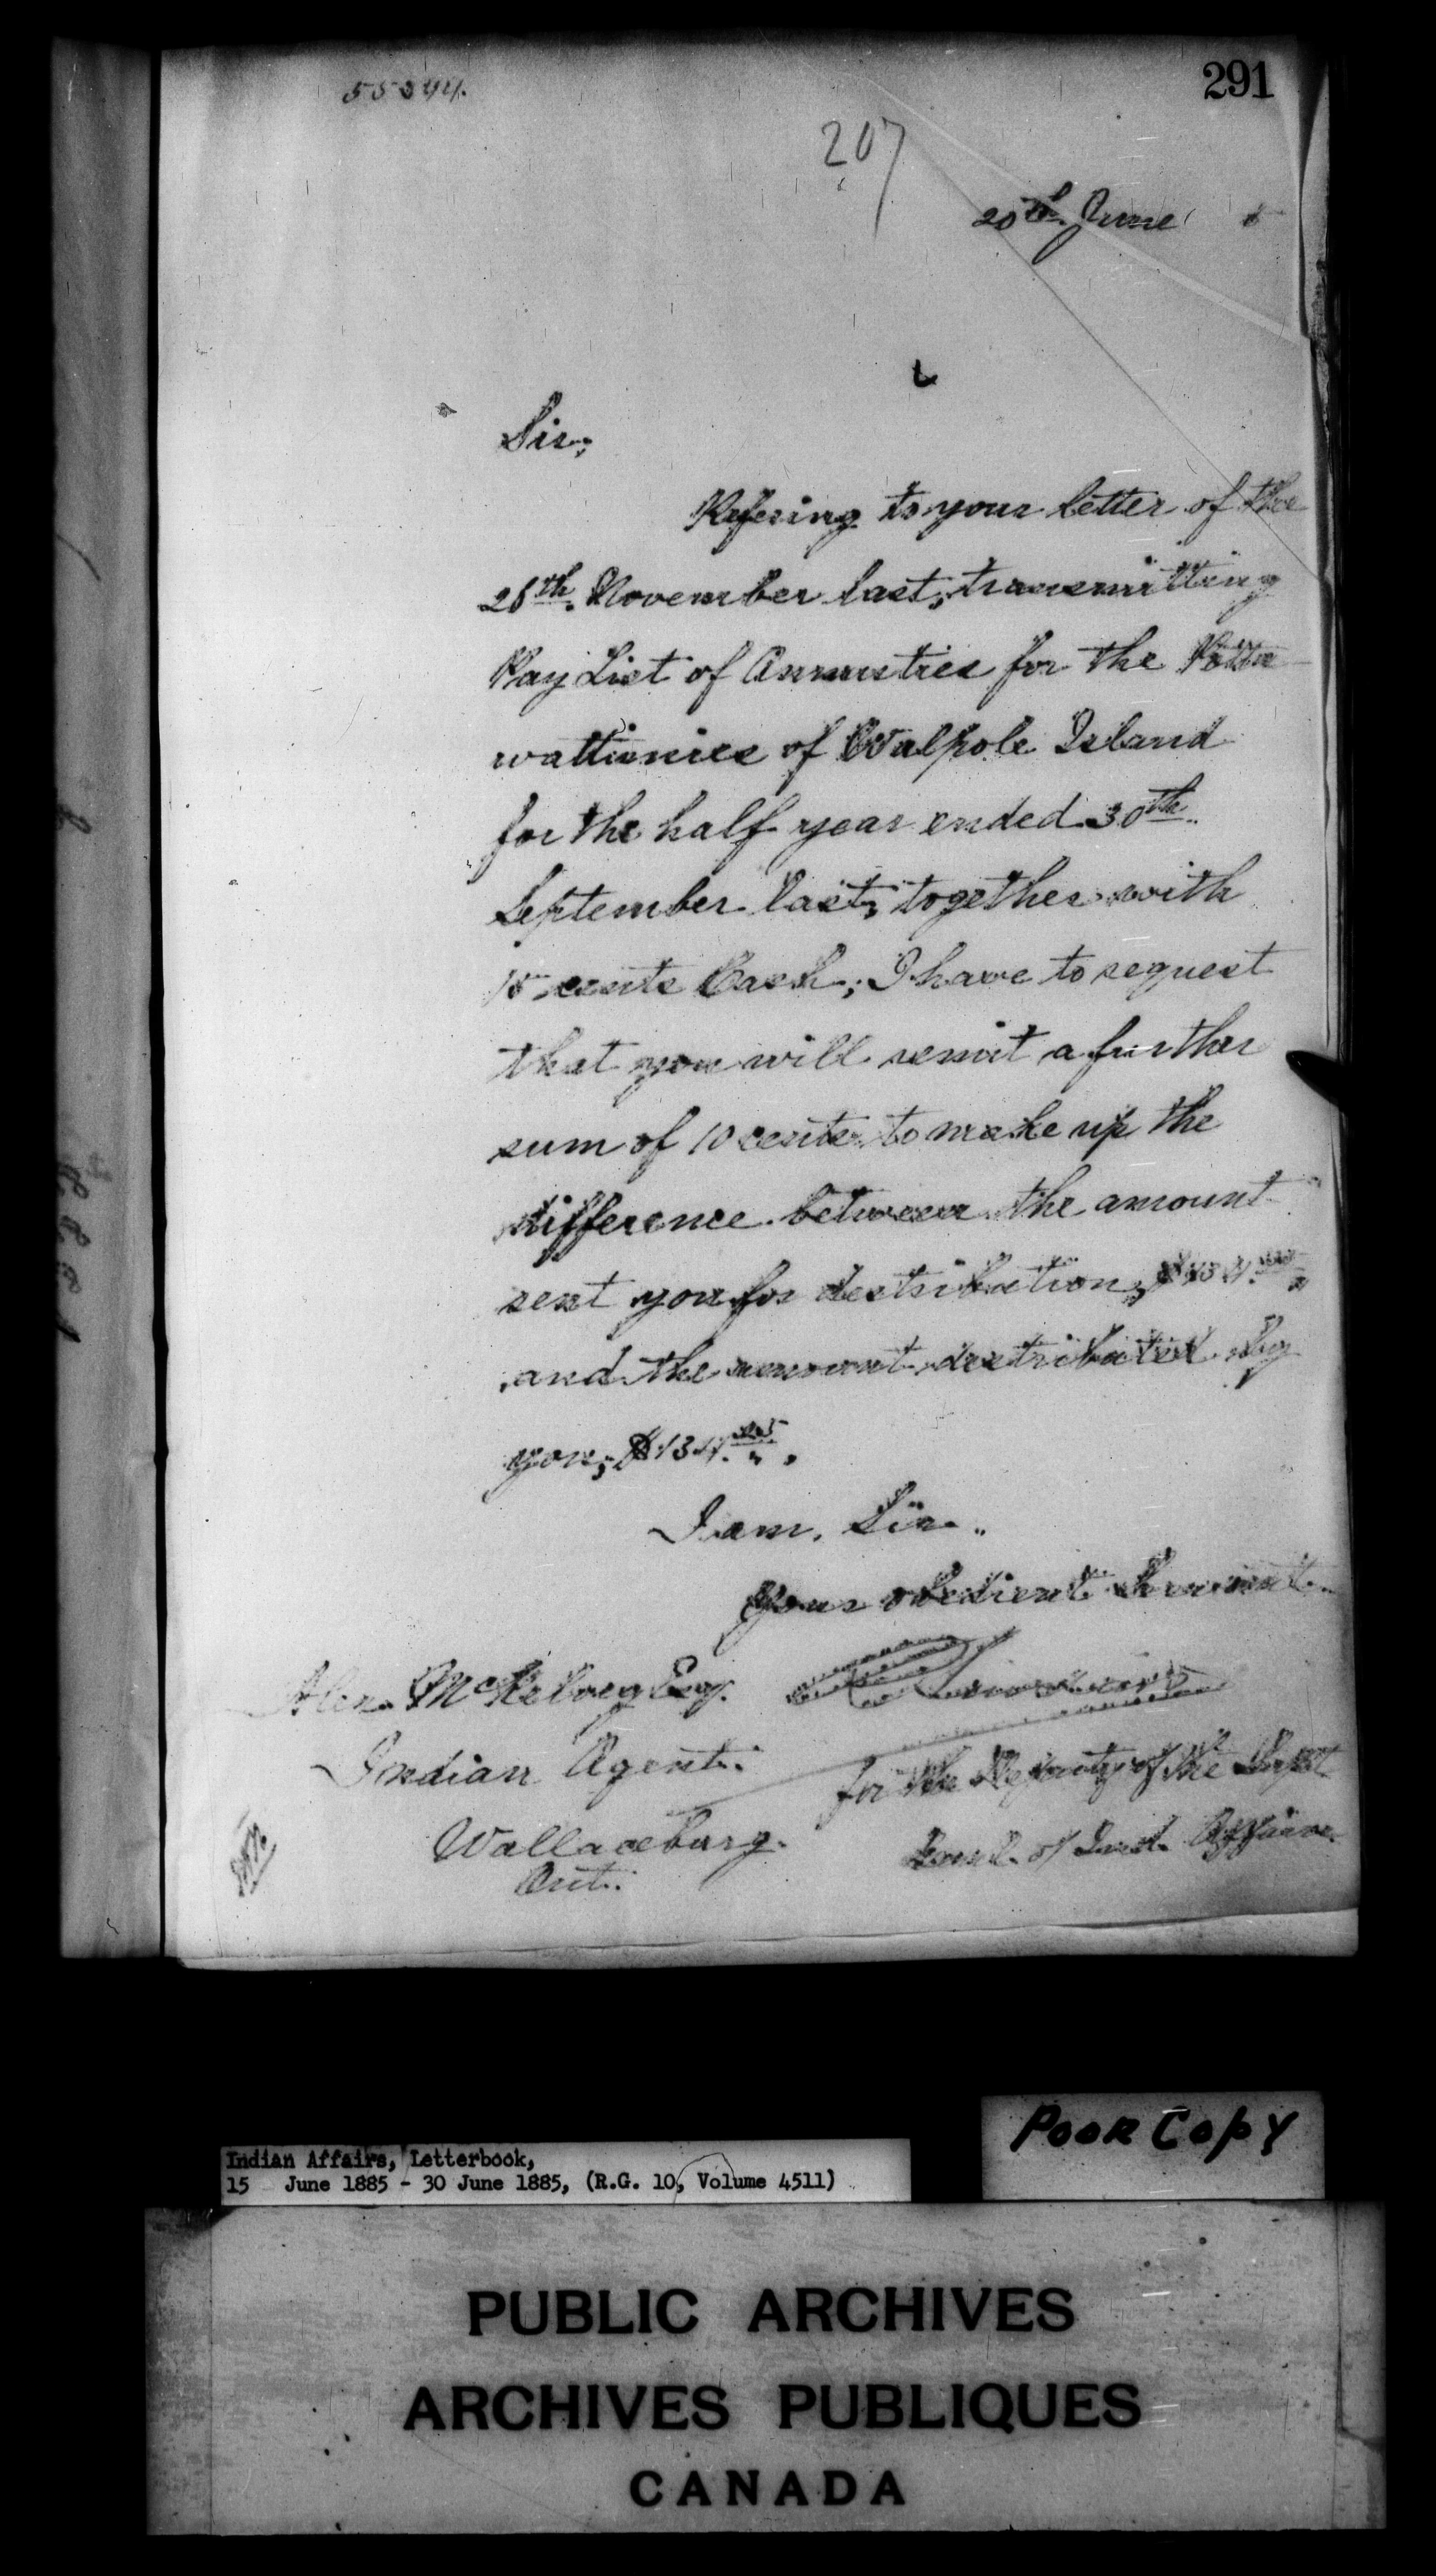 291
207
20th June 5
Sir,
Refering to your letter of the
26th November last, transmitting
Pay List of Annuities for the Potta
wattimies of Walpole Island
for the half year ended 30th
September last, together with
15 cents Cash, I have to request
that you will remit a further
sum of 10 cents to make up the
difference between the amount
sent you for destribution,
and the amount destributed by
you,
I am, Sir,
Your obedient Servant
Alex McKelvey Esq.
Indian Agent.
for the Deputy of the Supt
Wallaceburg.
Genl. of Ind. Affairs.
Ont.
Poor Copy
Indian Affairs, Letterbook,
15 June 1885 - 30 June 1885, (R.G. 10, Volume 4511)
PUBLIC ARCHIVES
ARCHIVES PUBLIQUES
CANADA